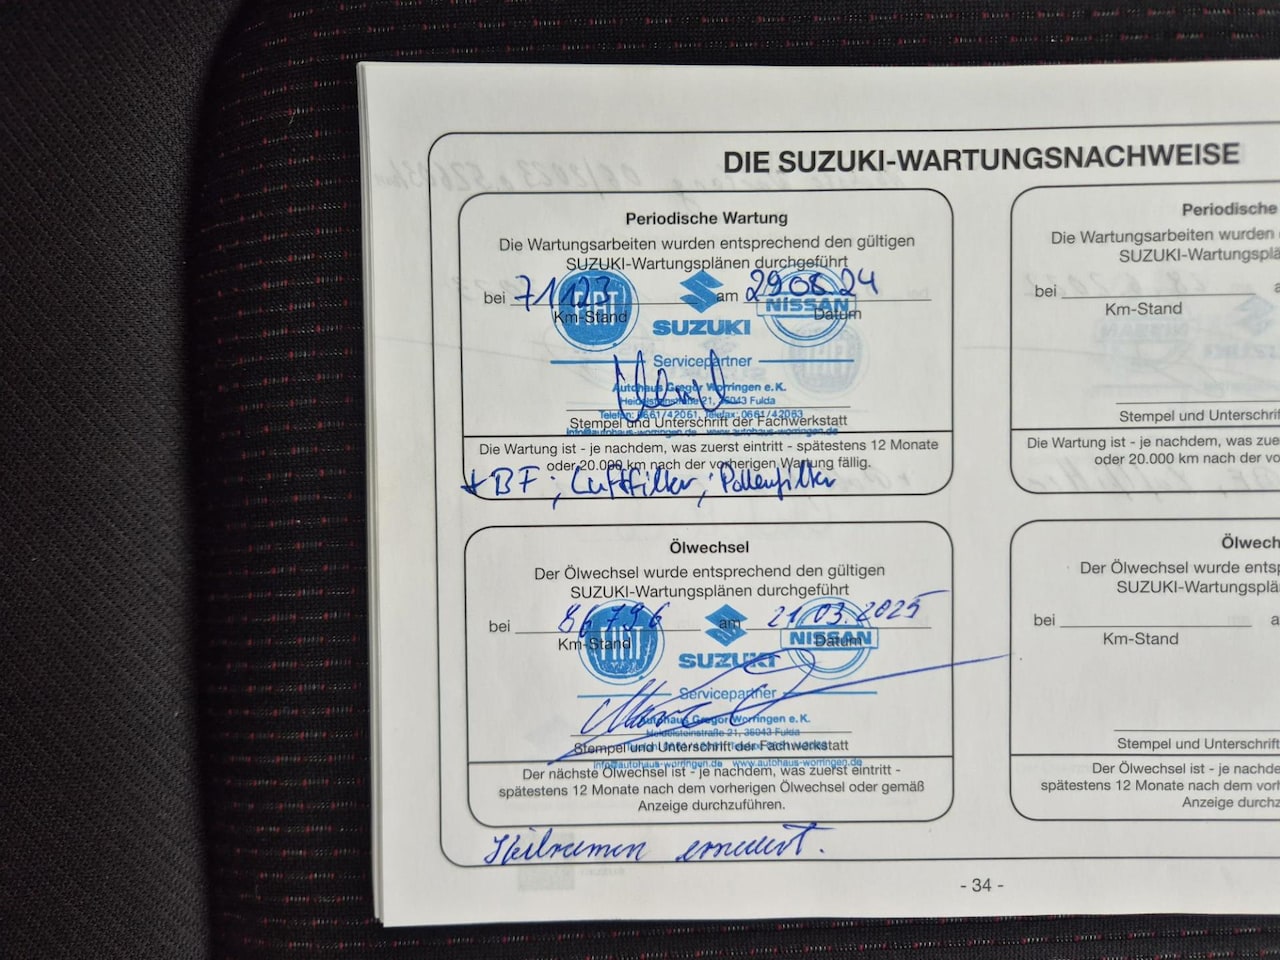 DIE SUZUKI-WARTUNGSNACHWEISE
Periodische Wartung
Die Wartungsarbeiten wurden entsprechend den gültigen
SUZUKI-Wartungsplänen durchgeführt
bei 71123 am 29.08.24
Km-Stand Datum
FIAT SUZUKI NISSAN
Servicepartner
Autohaus Gregor Worringen e. K.
Heidelsteinstraße 21, 36043 Fulda
Telefon: 0661/42061, Telefax: 0661/42063
info@autohaus-worringen.de www.autohaus-worringen.de
Stempel und Unterschrift der Fachwerkstatt
Die Wartung ist - je nachdem, was zuerst eintritt - spätestens 12 Monate
oder 20.000 km nach der vorherigen Wartung fällig.
+ BF; Luftfilter; Pollenfilter
Ölwechsel
Der Ölwechsel wurde entsprechend den gültigen
SUZUKI-Wartungsplänen durchgeführt
bei 86796 am 21.03.2025
Km-Stand Datum
FIAT SUZUKI NISSAN
Servicepartner
Autohaus Gregor Worringen e. K.
Heidelsteinstraße 21, 36043 Fulda
info@autohaus-worringen.de www.autohaus-worringen.de
Stempel und Unterschrift der Fachwerkstatt
Der nächste Ölwechsel ist - je nachdem, was zuerst eintritt -
spätestens 12 Monate nach dem vorherigen Ölwechsel oder gemäß
Anzeige durchzuführen.
Keilriemen erneuert.
Periodische
Die Wartungsarbeiten wurden
SUZUKI-Wartungsplä
bei
Km-Stand
Stempel und Unterschrif
Die Wartung ist - je nachdem, was zue
oder 20.000 km nach der vo
Ölwech
Der Ölwechsel wurde entsp
SUZUKI-Wartungsplä
bei
Km-Stand
Stempel und Unterschrift
Der Ölwechsel ist - je nachde
spätestens 12 Monate nach dem vorh
Anzeige durchz
- 34 -